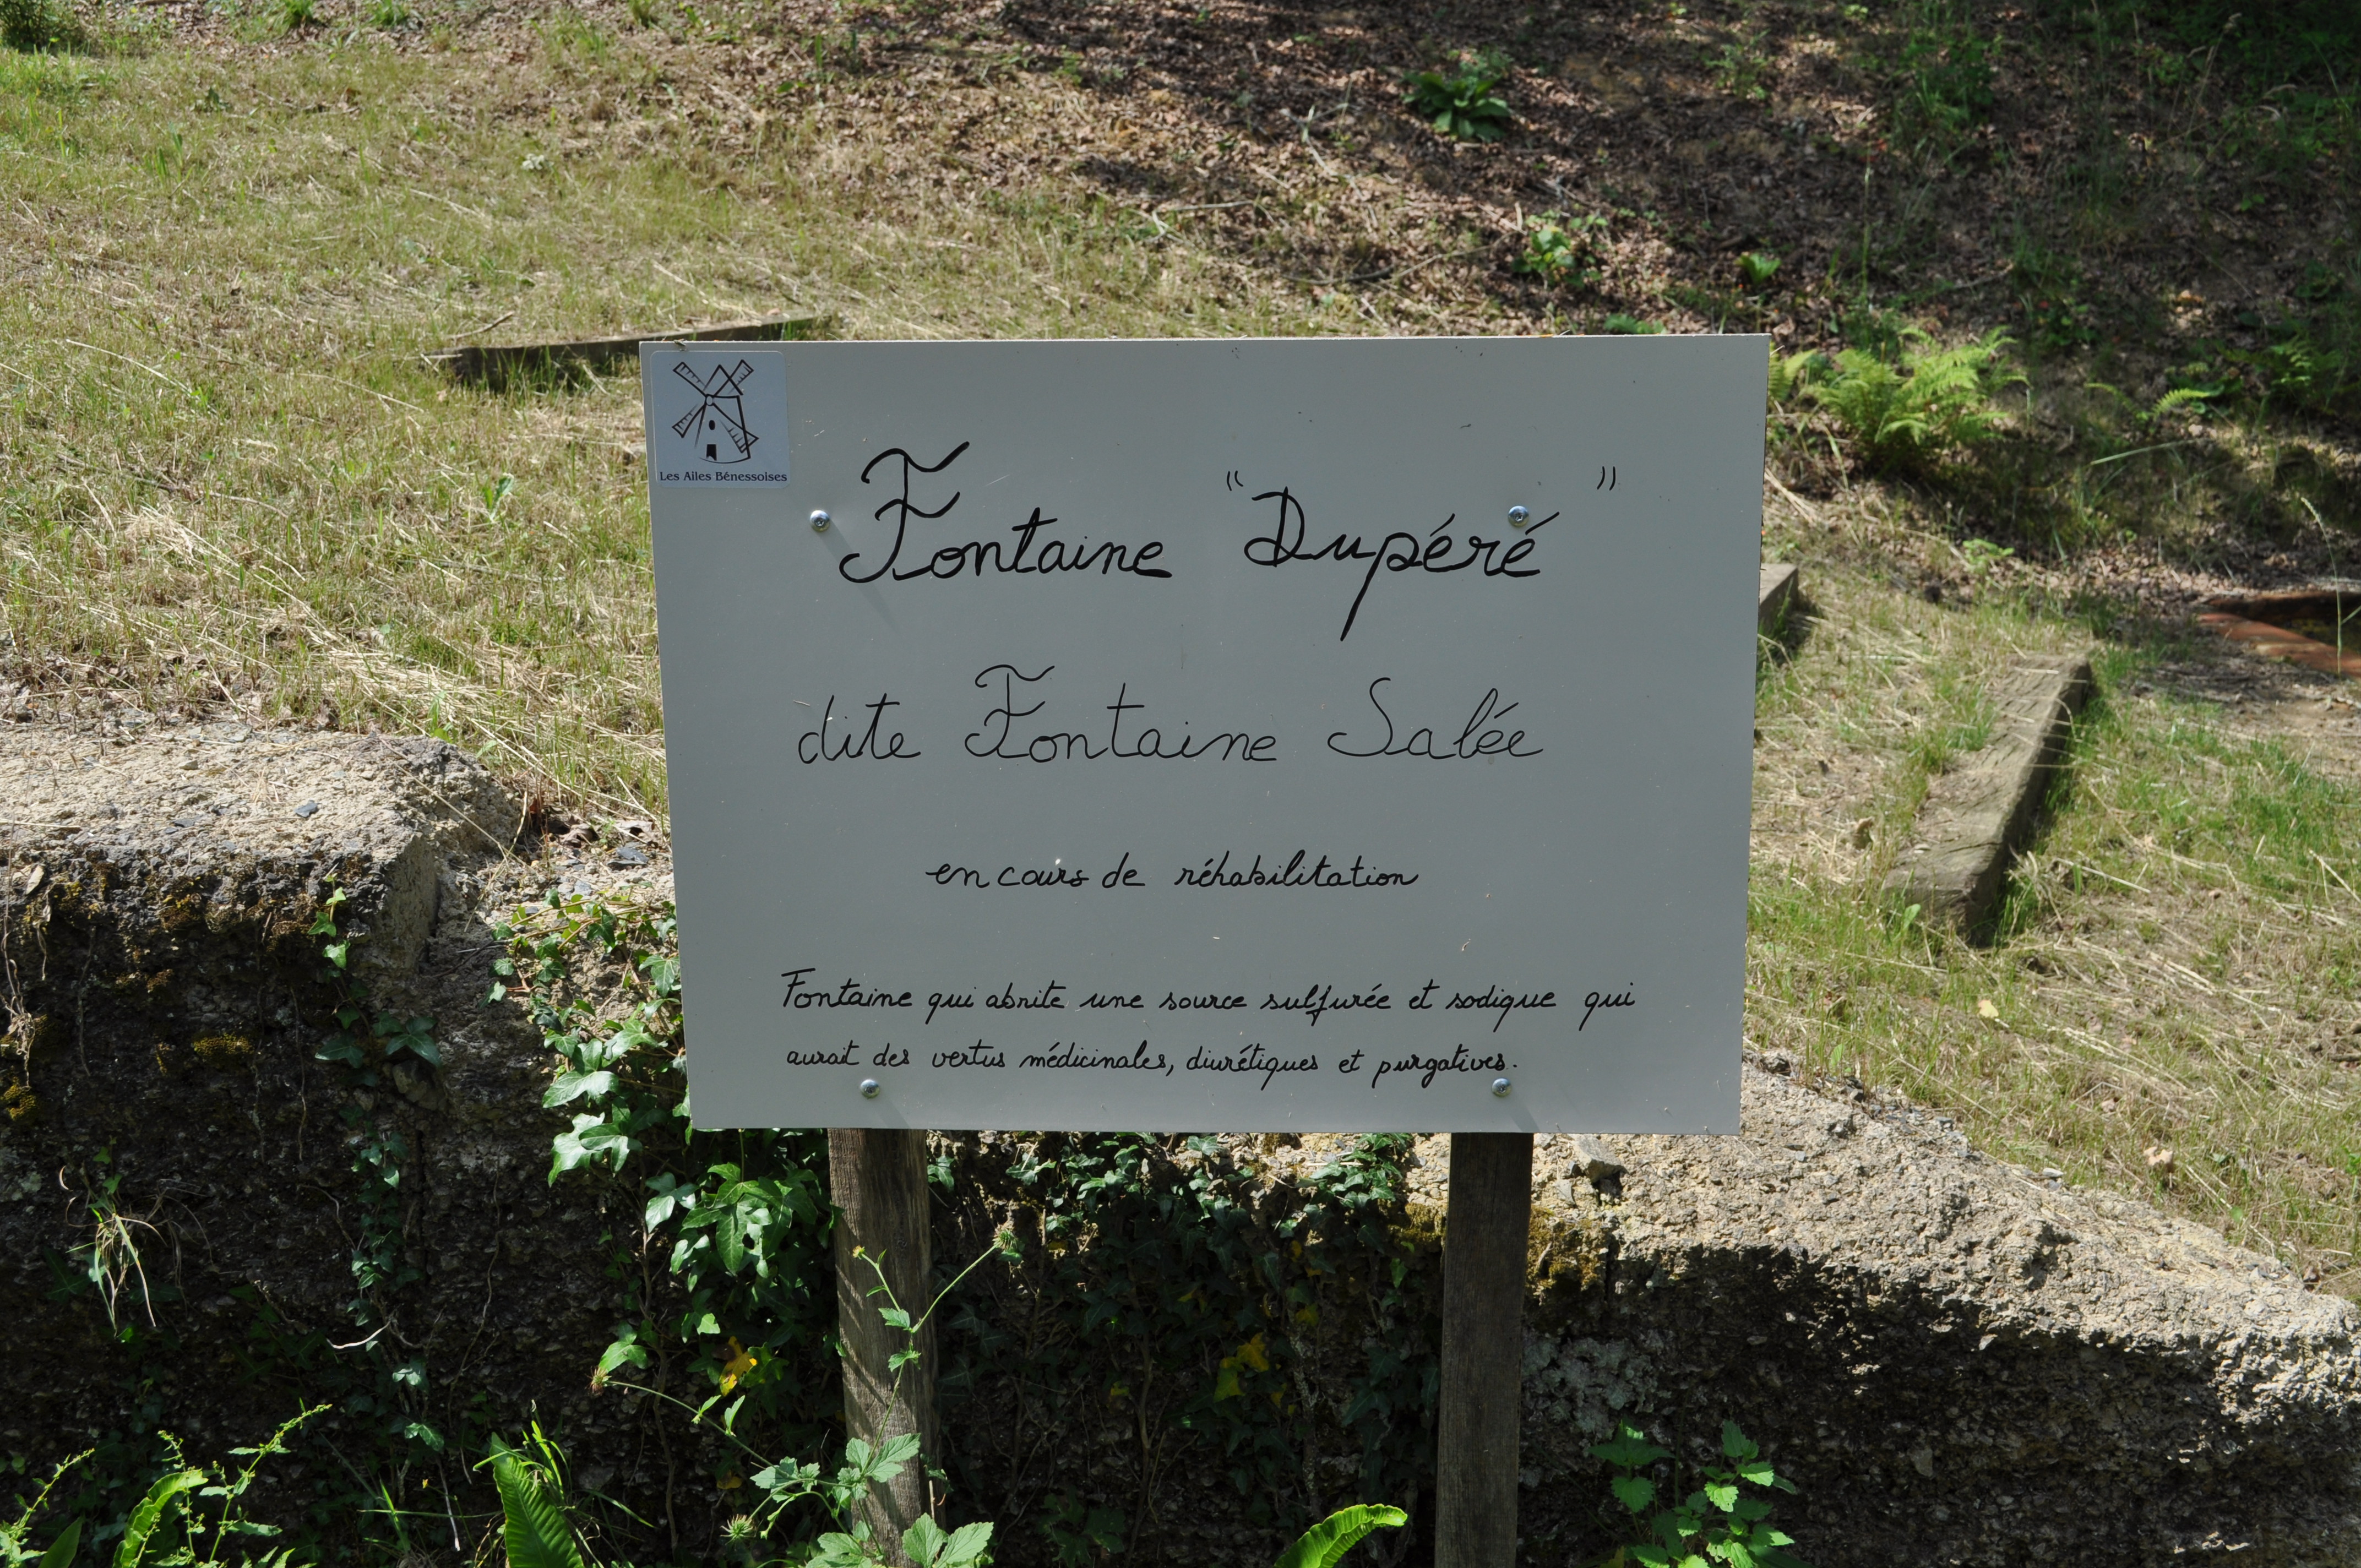 Les Ailes Bénessoises
Fontaine "Dupéré"
dite Fontaine Salée
en cours de réhabilitation
Fontaine qui abrite une source sulfurée et sodique qui
aurait des vertus médicinales, diurétiques et purgatives.